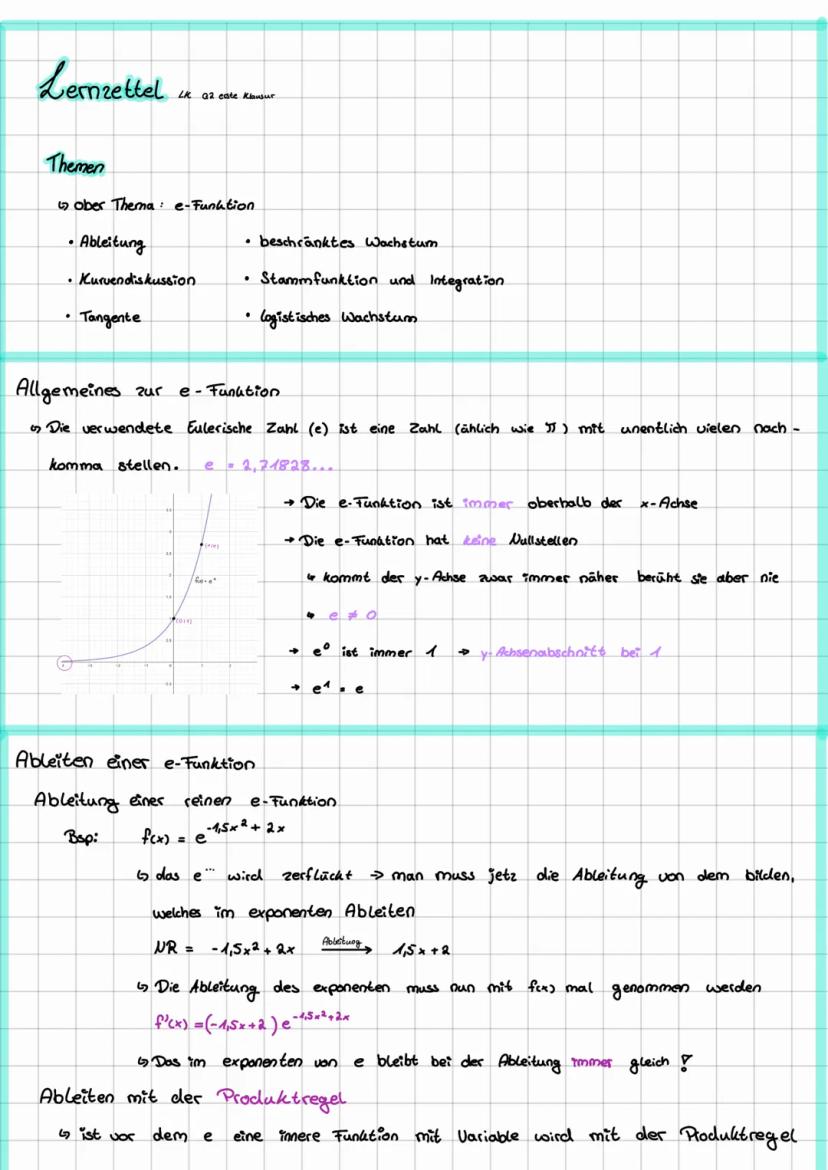 Lernzettel LK Q2 erste Klausur
Themen
↳ ober Thema: e-Funktion
• Ableitung • beschränktes Wachstum
• Kurvendiskussion • Stammfunktion und Integration
• Tangente • logistisches Wachstum
Allgemeines zur e-Funktion
↳ Die verwendete Eulerische Zahl (e) ist eine Zahl (ählich wie π) mit unentlich vielen nach-
komma stellen. e = 2,71828...
→ Die e-Funktion ist immer oberhalb der x-Achse
→ Die e-Funktion hat keine Nullstellen
↳ kommt der y-Achse zwar immer näher berüht sie aber nie
↳ e ≠ 0
→ e⁰ ist immer 1 → y-Achsenabschnitt bei 1
→ e¹ = e
Ableiten einer e-Funktion
Ableitung einer reinen e-Funktion
Bsp: f(x) = e^-1,5x²+2x
↳ das e^... wird zerflückt → man muss jetz die Ableitung von dem bilden,
welches im exponenten Ableiten
NR = -1,5x²+2x Ableitung → 1,5x+2
↳ Die Ableitung des exponenten muss nun mit f(x) mal genommen werden
f'(x) = (-1,5x+2) e^-1,5x²+2x
↳ Das im exponenten von e bleibt bei der Ableitung immer gleich !
Ableiten mit der Produktregel
↳ ist vor dem e eine innere Funktion mit Variable wird mit der Produktregel